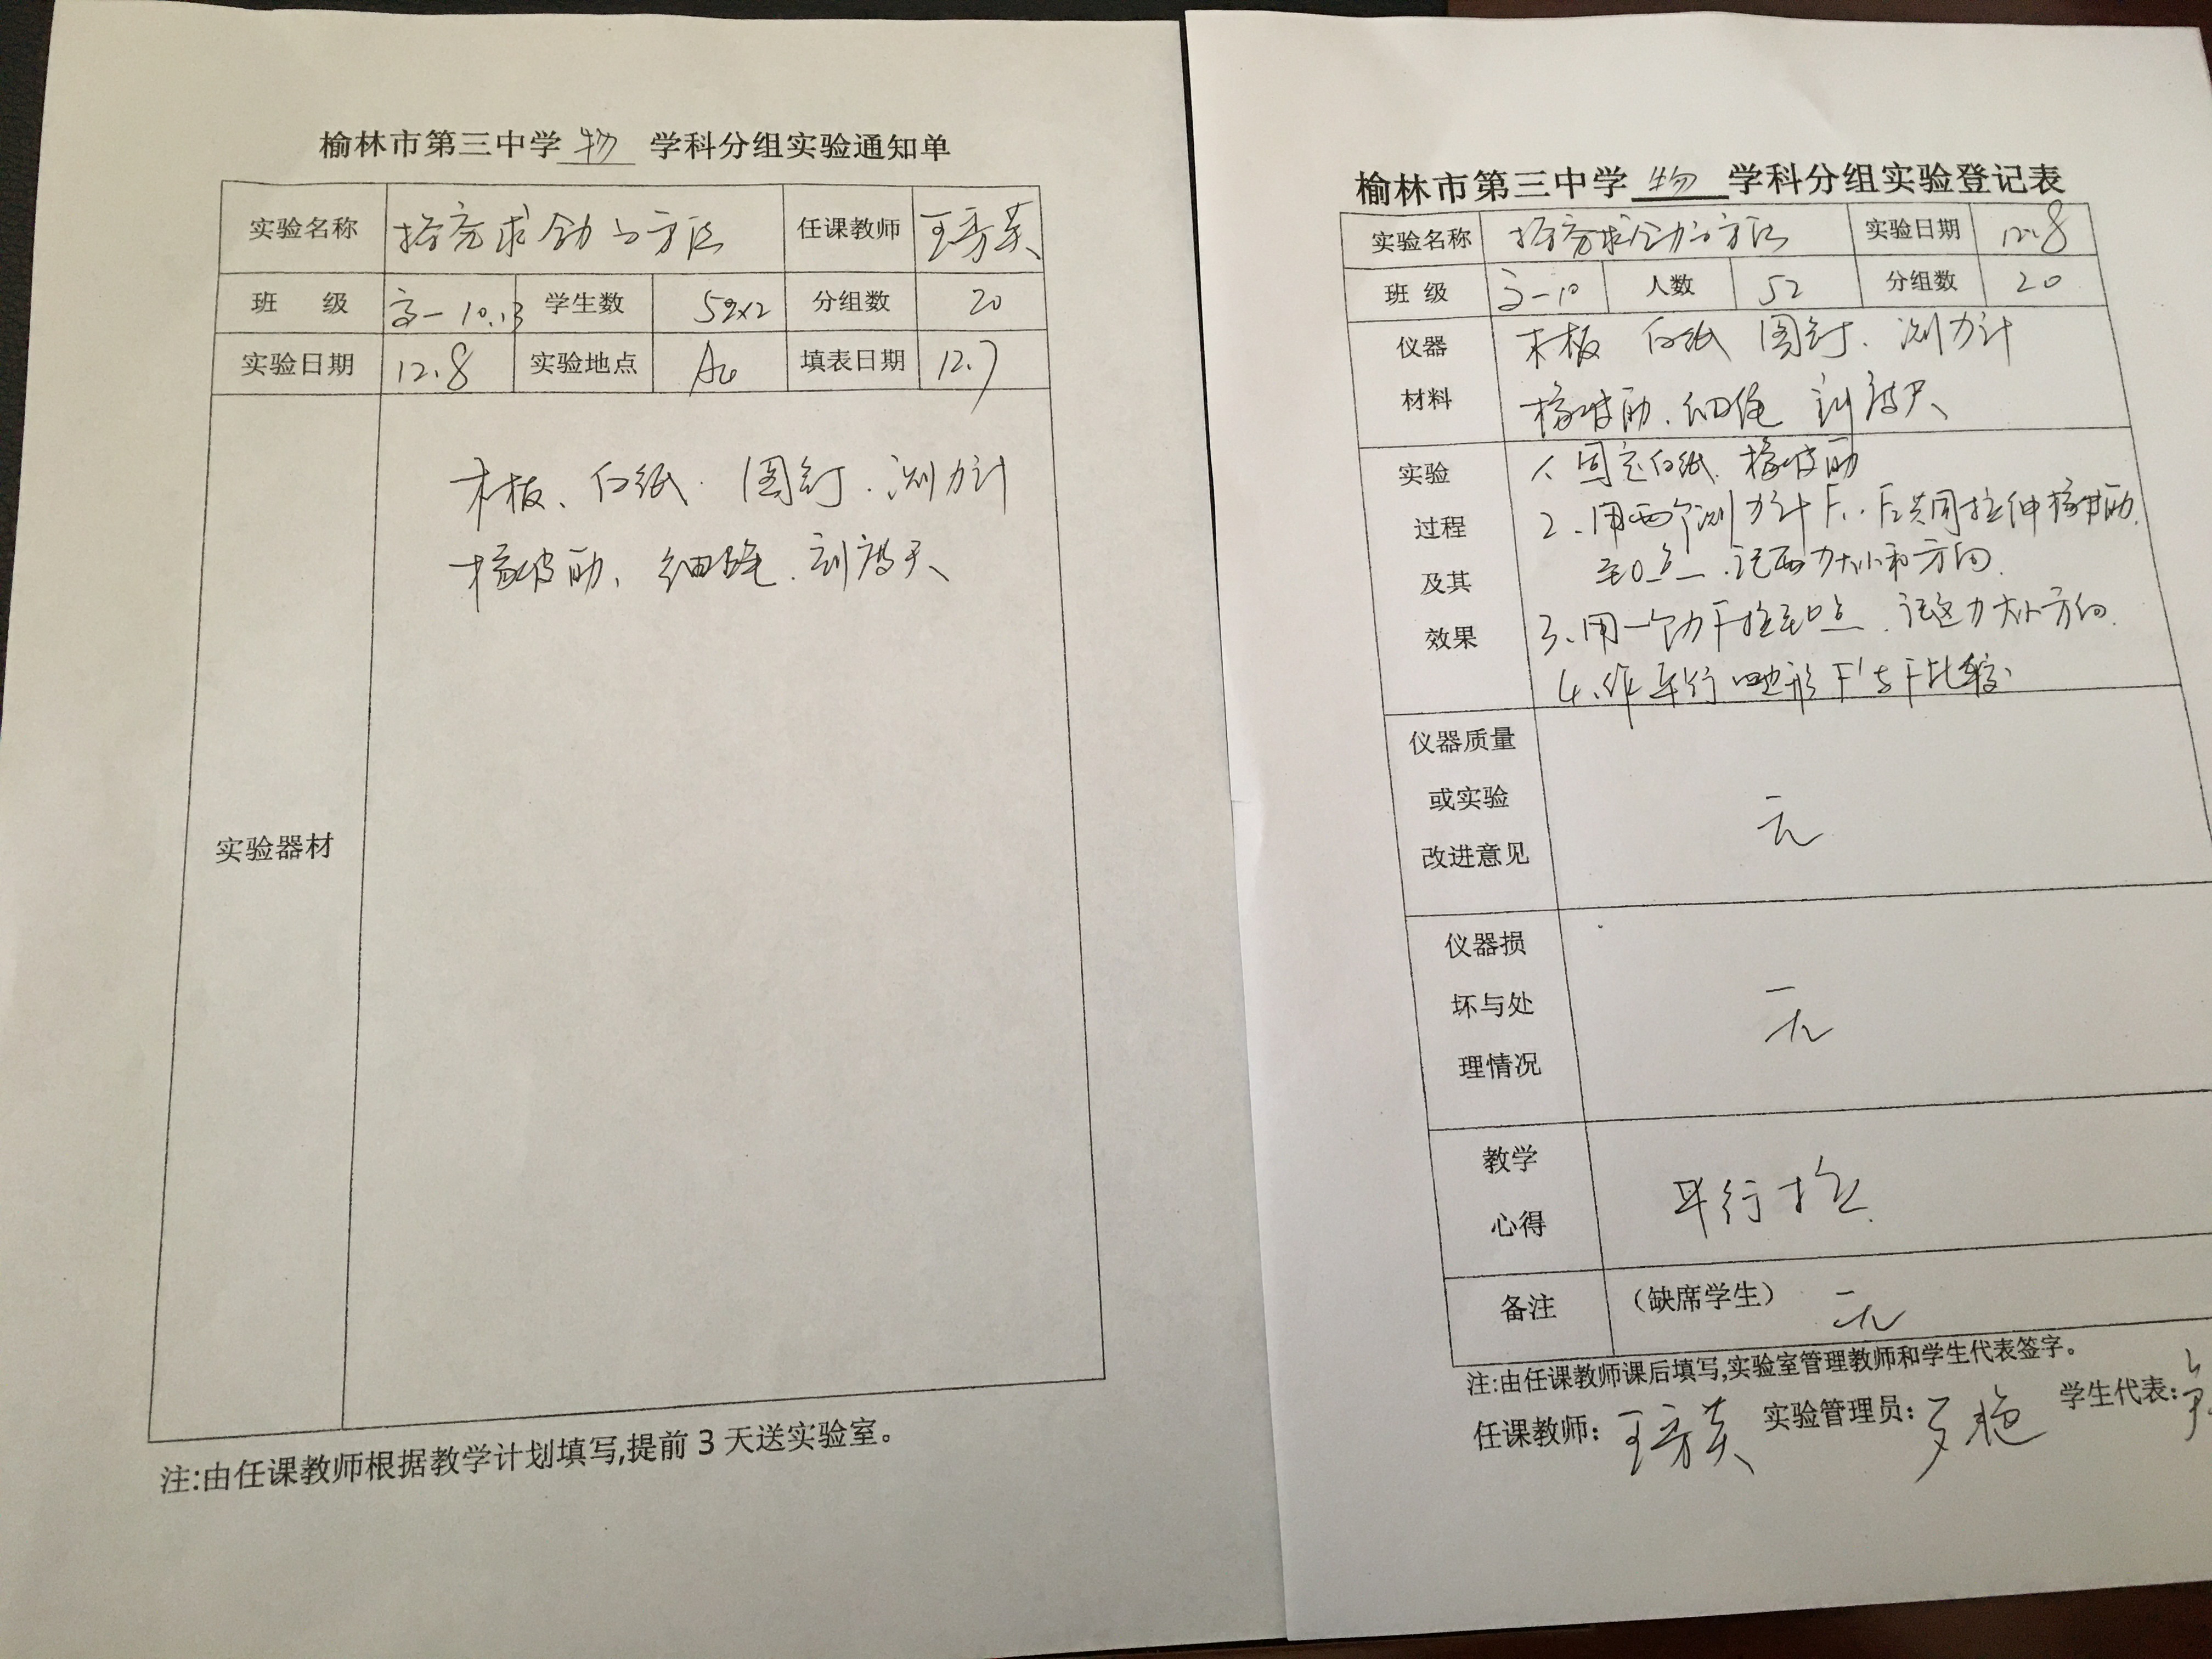 榆林市第三中学 物 学科分组实验通知单
实验名称 探究求合力的方法 任课教师 王芳英
班 级 高一10.13 学生数 52×2 分组数 20
实验日期 12.8 实验地点 填表日期 12.7
实验器材
木板、白纸. 图钉. 测力计
橡皮筋、细绳. 刻度尺
注:由任课教师根据教学计划填写,提前3天送实验室。
榆林市第三中学 物 学科分组实验登记表
实验名称 探究求合力的方法 实验日期 12.8
班 级 高一10 人数 52 分组数 20
仪器
材料
木板 白纸 图钉. 测力计
橡皮筋. 细绳 刻度尺
实验
过程
及其
效果
1. 固定白纸. 橡皮筋
2. 用两个测力计F₁. F₂共同拉伸橡皮筋.
至O点. 记两力大小和方向.
3. 用一个力F拉至O点. 记这力大小方向.
4. 作平行四边形F'与F比较.
仪器质量
或实验
改进意见
无
仪器损
坏与处
理情况
无
教学
心得
平行拉.
备注 (缺席学生) 无
注:由任课教师课后填写,实验室管理教师和学生代表签字。
任课教师: 王芳英 实验管理员: 学生代表: